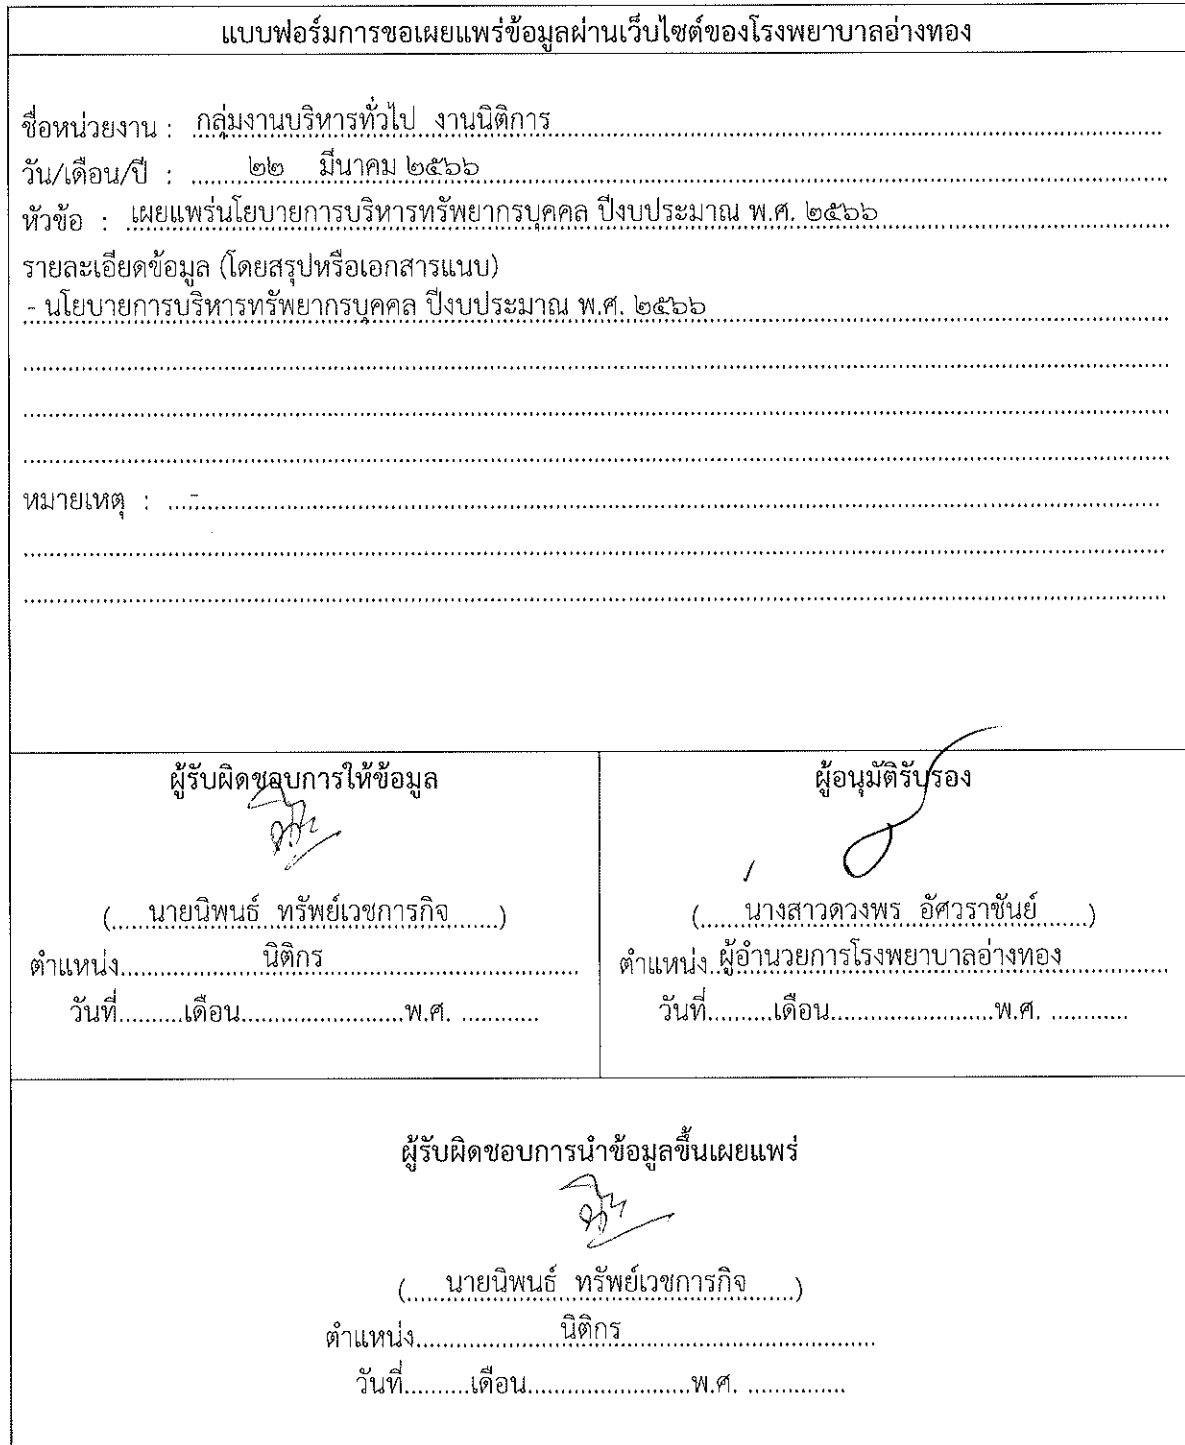 แบบฟอร์มการขอเผยแพร่ข้อมูลผ่านเว็บไซต์ของโรงพยาบาลอ่างทอง
ชื่อหน่วยงาน : กลุ่มงานบริหารทั่วไป งานนิติการ
วัน/เดือน/ปี : ๒๒ มีนาคม ๒๕๖๖
หัวข้อ : เผยแพร่นโยบายการบริหารทรัพยากรบุคคล ปีงบประมาณ พ.ศ. ๒๕๖๖
รายละเอียดข้อมูล (โดยสรุปหรือเอกสารแนบ)
- นโยบายการบริหารทรัพยากรบุคคล ปีงบประมาณ พ.ศ. ๒๕๖๖
หมายเหตุ : ...-...
ผู้รับผิดชอบการให้ข้อมูล
(.....นายนิพนธ์ ทรัพย์เวชการกิจ.....)
ตำแหน่ง..........นิติกร..........
วันที่.........เดือน.......................พ.ศ. ............
ผู้อนุมัติรับรอง
(.....นางสาวดวงพร อัศวราชันย์.....)
ตำแหน่ง..ผู้อำนวยการโรงพยาบาลอ่างทอง..........
วันที่.........เดือน.......................พ.ศ. ............
ผู้รับผิดชอบการนำข้อมูลขึ้นเผยแพร่
(.....นายนิพนธ์ ทรัพย์เวชการกิจ.....)
ตำแหน่ง..........นิติกร..........
วันที่.........เดือน.......................พ.ศ. ...............